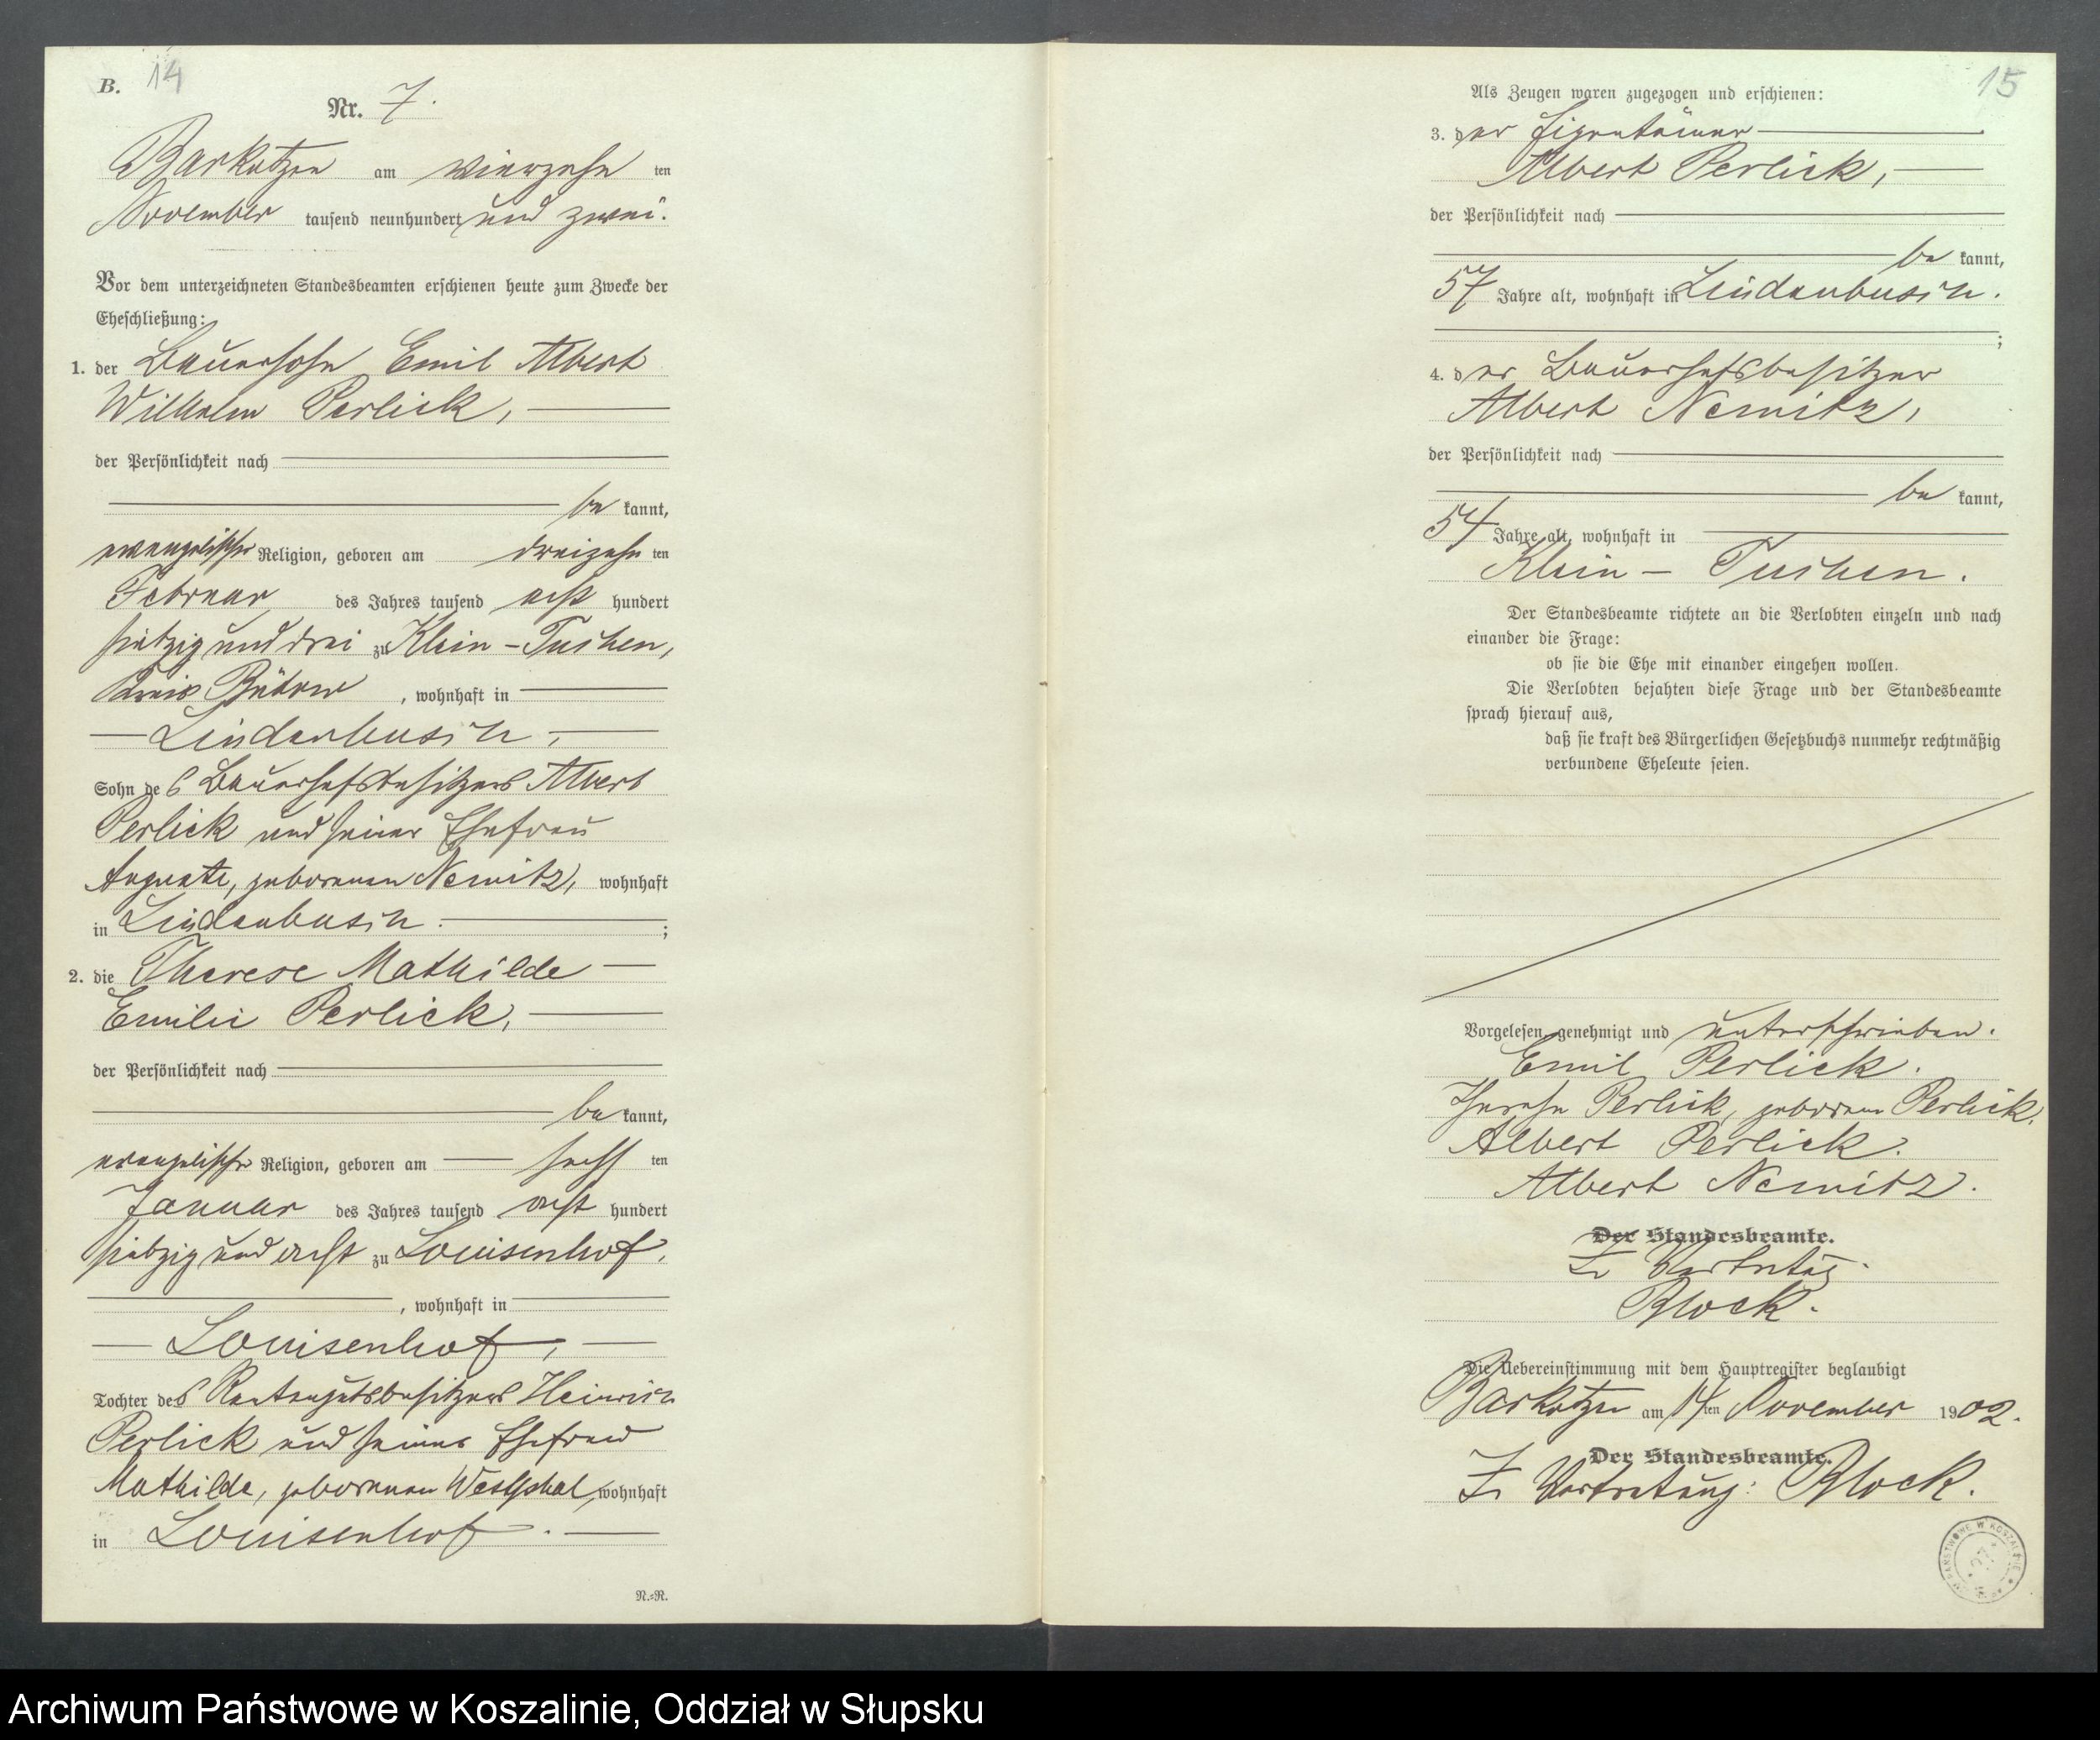 B. 14
Nr. 7.
Barkotzen am vierzehn ten
November tausend neunhundert und zwei.
Vor dem unterzeichneten Standesbeamten erschienen heute zum Zwecke der
Eheschließung:
1. der Bauersohn Emil Albert
Wilhelm Perlick,
der Persönlichkeit nach
be kannt,
evangelischer Religion, geboren am dreizehn ten
Februar des Jahres tausend acht hundert
siebzig und drei zu Klein-Tuchen,
Kreis Bütow, wohnhaft in
Lindenbusch,
Sohn des Bauerhofsbesitzers Albert
Perlick und seiner Ehefrau
Auguste, geborenen Nemitz, wohnhaft
in Lindenbusch. ;
2. die Therese Mathilde
Emilie Perlick,
der Persönlichkeit nach
be kannt,
evangelischer Religion, geboren am sechs ten
Januar des Jahres tausend acht hundert
siebzig und acht zu Louisenhof,
, wohnhaft in
Louisenhof,
Tochter des Rentengutsbesitzers Heinrich
Perlick und seiner Ehefrau
Mathilde, geborenen Westphal, wohnhaft
in Louisenhof.
N.=R.
15
Als Zeugen waren zugezogen und erschienen:
3. der Eigentümer
Albert Perlick,
der Persönlichkeit nach
be kannt,
57 Jahre alt, wohnhaft in Lindenbusch.
;
4. der Bauerhofsbesitzer
Albert Nemitz,
der Persönlichkeit nach
be kannt,
54 Jahre alt, wohnhaft in
Klein-Tuchen.
Der Standesbeamte richtete an die Verlobten einzeln und nach
einander die Frage:
ob sie die Ehe mit einander eingehen wollen.
Die Verlobten bejahten diese Frage und der Standesbeamte
sprach hierauf aus,
daß sie kraft des Bürgerlichen Gesetzbuchs nunmehr rechtmäßig
verbundene Eheleute seien.
Vorgelesen, genehmigt und unterschrieben.
Emil Perlick.
Therese Perlick, geborene Perlick.
Albert Perlick.
Albert Nemitz.
Der Standesbeamte.
In Vertretung.
Block.
Die Uebereinstimmung mit dem Hauptregister beglaubigt
Barkotzen am 14ten November 1902.
Der Standesbeamte.
In Vertretung: Block.
Archiwum Państwowe w Koszalinie, Oddział w Słupsku